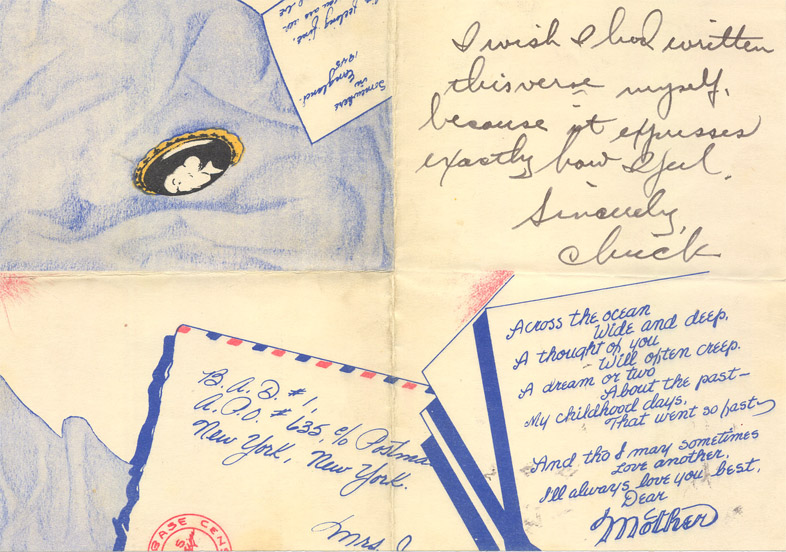 Somewhere
in
England.
1945
feeling fine.
you are
I wish I had written
this verse myself,
because it expresses
exactly how I feel.
Sincerely,
Chuck
B.A.D. #1,
A.P.O. #635, c/o Postma
New York, New York.
Mrs.
BASE CENS
Across the ocean
Wide and deep,
A thought of you
Will often creep.
A dream or two
About the past—
My childhood days,
That went so fast—
And tho I may sometimes
Love another,
I'll always love you best,
Dear
Mother